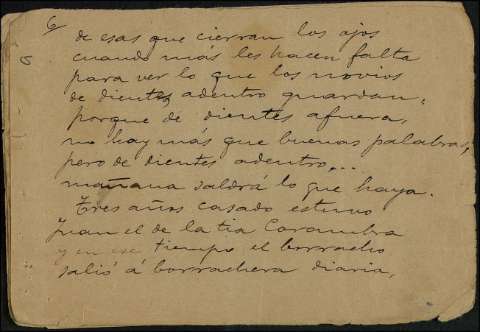 6
de esas que cierran los ojos
cuando más les hacen falta
para ver lo que los novios
de dientes adentro guardan,
porque de dientes afuera,
no hay más que buenas palabras,
pero de dientes adentro....
mañana saldrá lo que haya.
Tres años casado estuvo
Juan el de la tia Carambra
y en ese tiempo el borracho
salió á borrachera diaria,